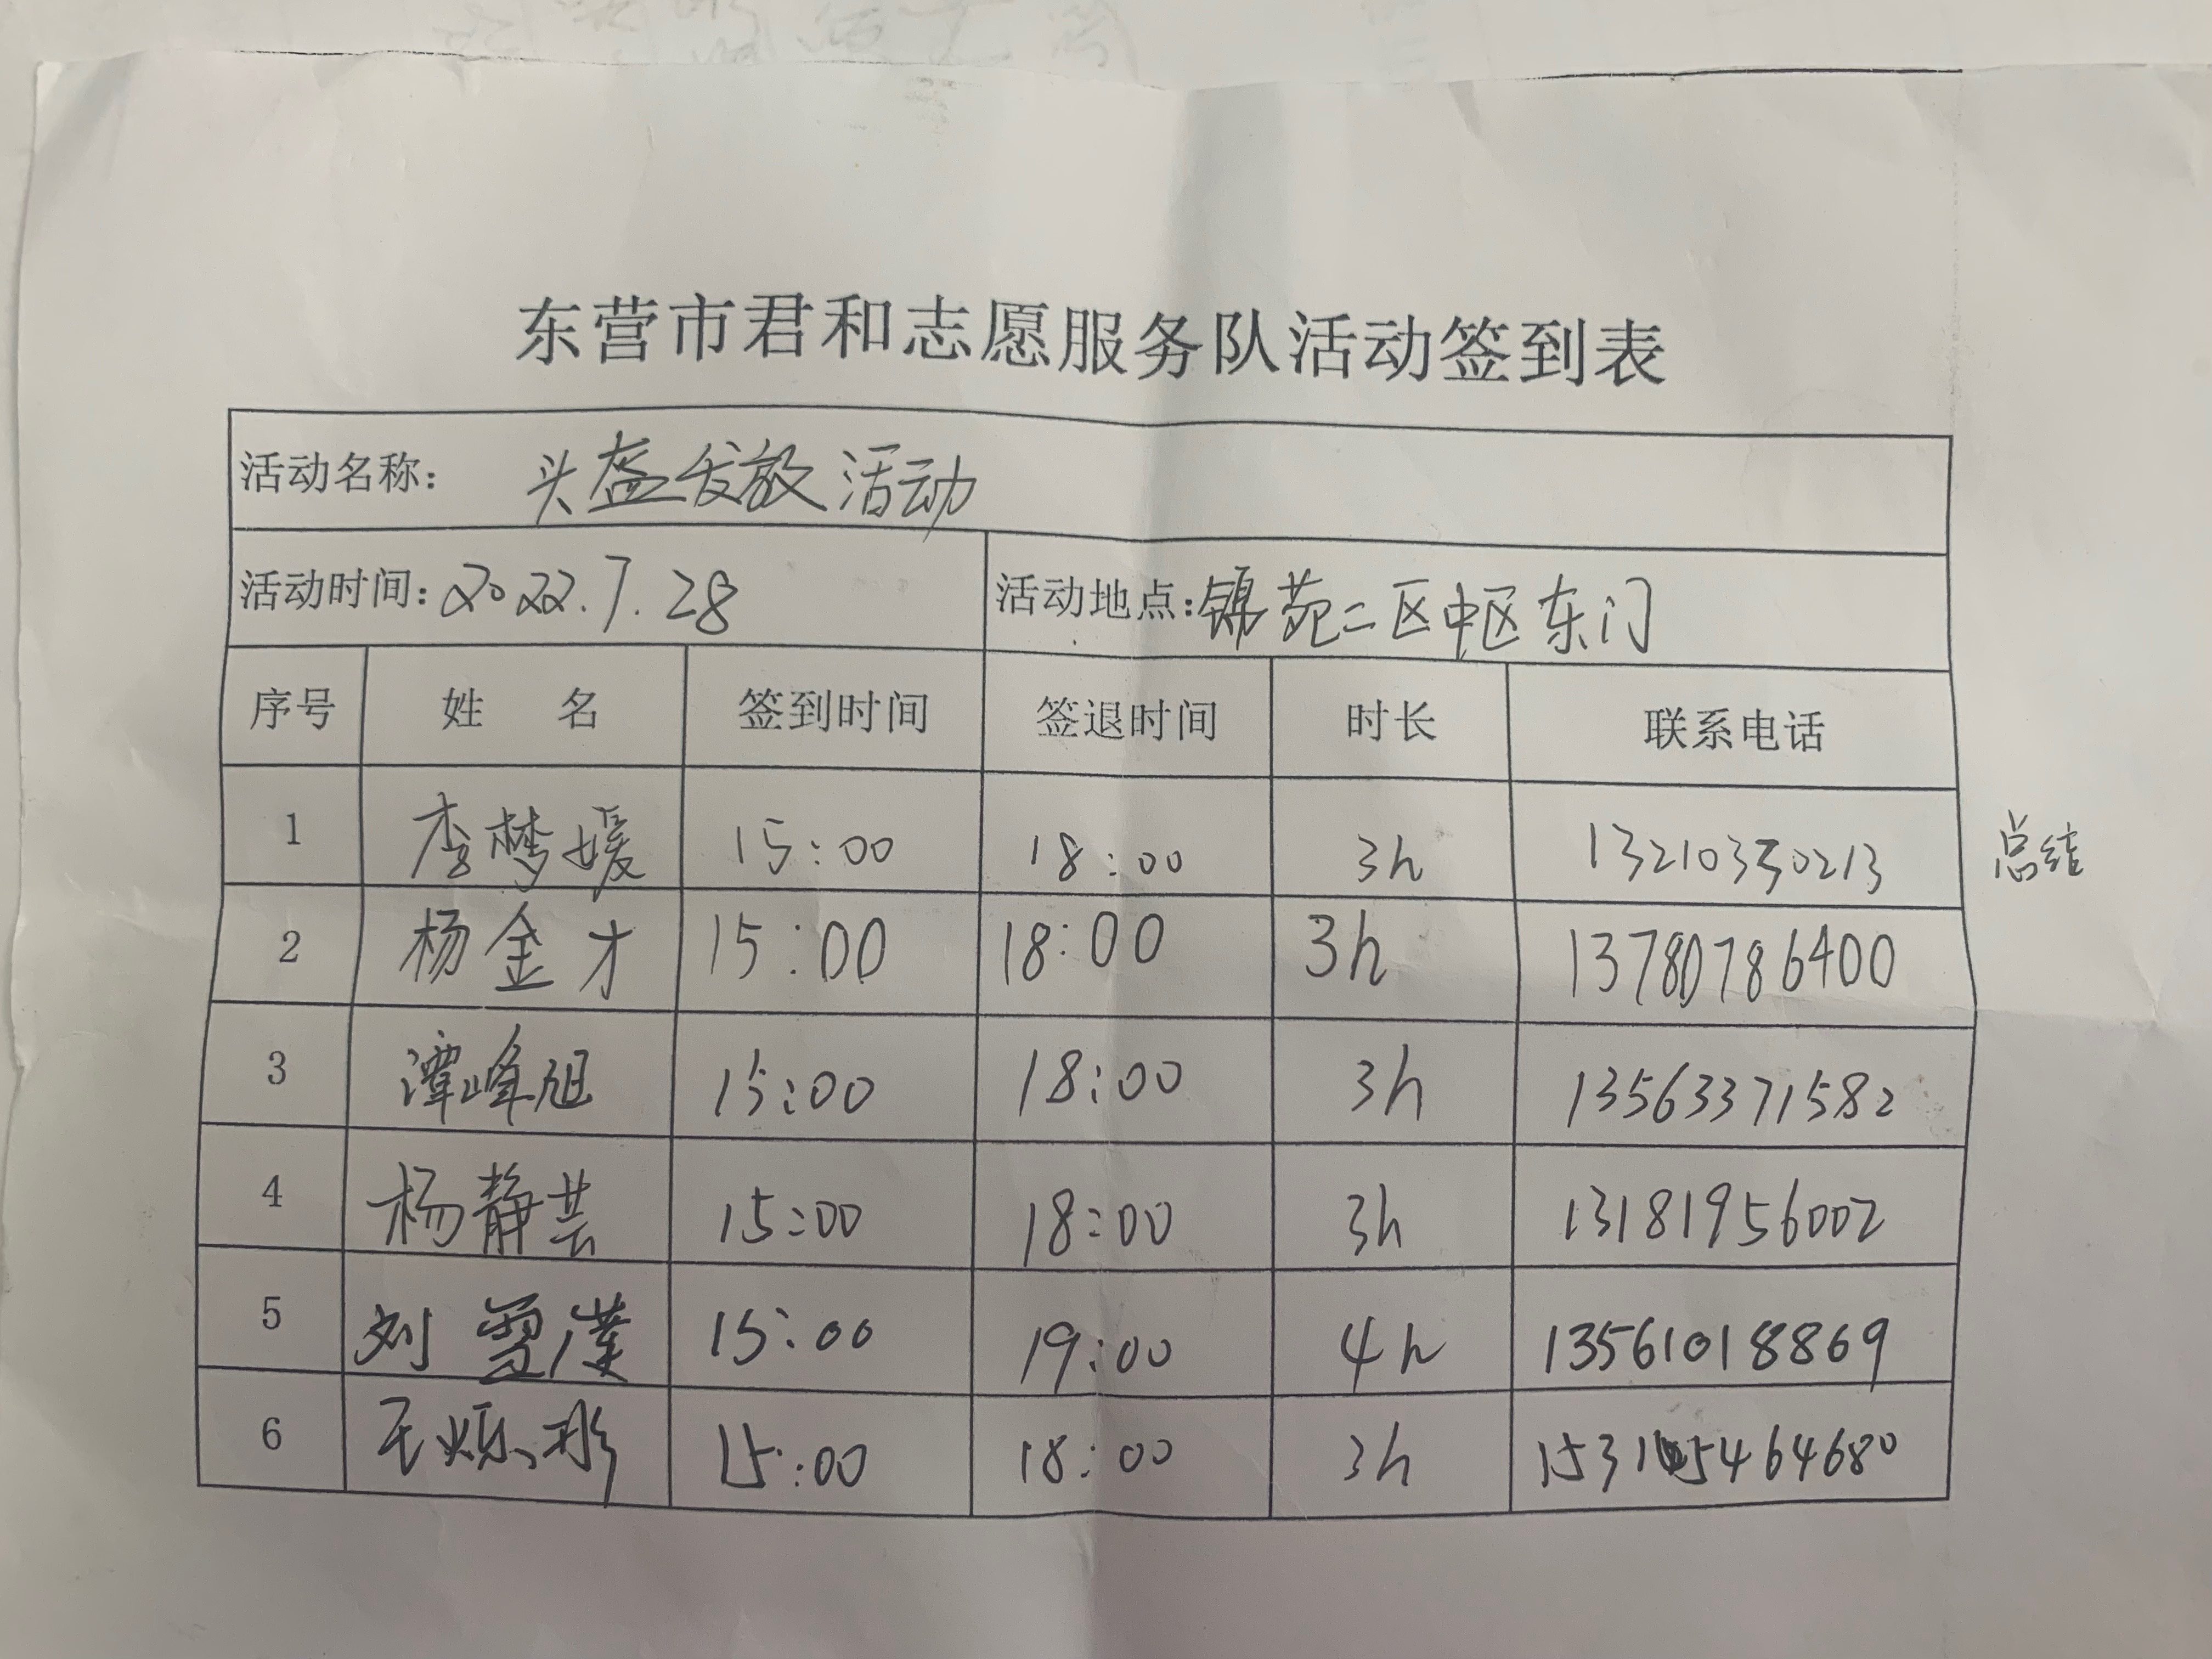 东营市君和志愿服务队活动签到表
活动名称： 头盔发放活动
活动时间：2022.7.28 活动地点：锦苑二区中区东门
序号 姓 名 签到时间 签退时间 时长 联系电话
1 李梦媛 15:00 18:00 3h 13210350213 总结
2 杨金才 15:00 18:00 3h 13780786400
3 潭峰旭 15:00 18:00 3h 13563371582
4 杨静芸 15:00 18:00 3h 13181956002
5 刘雪濮 15:00 19:00 4h 13561018869
6 15:00 18:00 3h